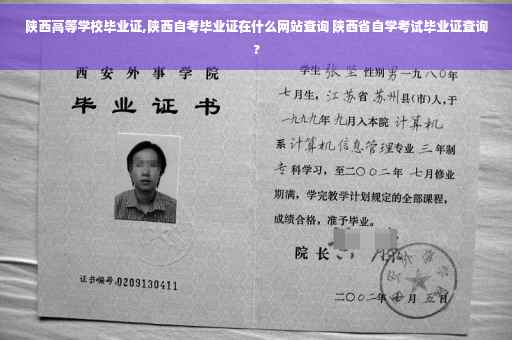 陕西高等学校毕业证,陕西自考毕业证在什么网站查询 陕西省自学考试毕业证查询
?
西安外事学院
毕业证书
证书编号:0209130411
学生 张坚 性别 男 一九八〇年
七月生，江苏省 苏州县(市)人,于
一九九九年 九月入本院 计算机
系 计算机信息管理专业 三 年制
专 科学习，至二〇〇二年 七月修业
期满，学完教学计划规定的全部课程，
成绩合格，准予毕业。
院长
二〇〇二年 月 五日